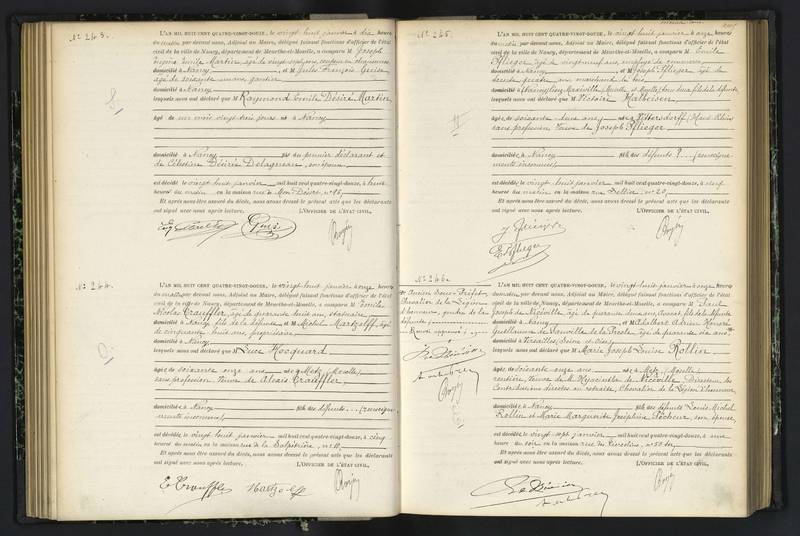 N° 243.
L'AN MIL HUIT CENT QUATRE-VINGT-DOUZE, le vingt huit janvier à dix heures
du matin, par devant nous, Adjoint au Maire, délégué faisant fonctions d'officier de l'état
civil de la ville de Nancy, département de Meurthe-et-Moselle, a comparu M Joseph
Eugène Emile Martin, âgé de vingt sept ans,
domicilié à Nancy, et M Jules François
âgé de soixante un ans, gantier
domicilié à Nancy
lesquels nous ont déclaré que M Raymond Emile Désiré Martin
âgé de un mois vingt trois jours né à Nancy
domicilié à Nancy fils du premier déclarant et
de Célestine Désirée Delagneau, son épouse
est décédé le vingt huit janvier mil huit cent quatre-vingt-douze, à huit
heures du matin en la maison rue de Mon Désert, n° 95,
Et après nous être assuré du décès, nous avons dressé le présent acte que les déclarants
ont signé avec nous après lecture. L'OFFICIER DE L'ÉTAT CIVIL,
N° 244.
L'AN MIL HUIT CENT QUATRE-VINGT-DOUZE, le vingt huit janvier à onze heures
du matin, par devant nous, Adjoint au Maire, délégué faisant fonctions d'officier de l'état
civil de la ville de Nancy, département de Meurthe-et-Moselle, a comparu M Emile
Nicolas Crauffler, âgé de quarante huit ans,
domicilié à Nancy fils de la défunte, et M Michel Martzolff, âgé
de cinquante huit ans, propriétaire,
domicilié à Nancy
lesquels nous ont déclaré que M Luce Hocquard
âgée de soixante onze ans née à Metz (Moselle)
sans profession, Veuve de Alexis Crauffler,
domiciliée à Nancy fille des défunts ... (renseigne
ments inconnus)
est décédée le vingt huit janvier mil huit cent quatre-vingt-douze, à cinq
heures du matin en la maison rue de la Salpétrière, n° 10,
Et après nous être assuré du décès, nous avons dressé le présent acte que les déclarants
ont signé avec nous après lecture. L'OFFICIER DE L'ÉTAT CIVIL,
E Crauffler Martzolff
N° 245.
L'AN MIL HUIT CENT QUATRE-VINGT-DOUZE, le vingt huit janvier à onze heures
du matin, par devant nous, Adjoint au Maire, délégué faisant fonctions d'officier de l'état
civil de la ville de Nancy, département de Meurthe-et-Moselle, a comparu M Emile
Pflieger, âgé de vingt neuf ans, employé de commerce
domicilié à Nancy, et M Joseph Pflieger, âgé de
trente quatre ans, marchand de bois,
domicilié à Maxéville (Meurthe et Moselle) tous deux fils de la défunte
lesquels nous ont déclaré que M Victoire Halbeisen
âgée de soixante deux ans, née à (Haut Rhin)
sans profession, Veuve de Joseph Pflieger
domiciliée à Nancy fille des défunts ?... (renseigne
ments inconnus)
est décédée le vingt huit janvier mil huit cent quatre-vingt-douze, à neuf
heures du matin en la maison rue Sellier, n° 20,
Et après nous être assuré du décès, nous avons dressé le présent acte que les déclarants
ont signé avec nous après lecture. L'OFFICIER DE L'ÉTAT CIVIL,
E Pflieger
N° 246.
Ancien Sous-Préfet,
Chevalier de la Légion
d'honneur, gendre de la
défunte,
Renvoi approuvé
L'AN MIL HUIT CENT QUATRE-VINGT-DOUZE, le vingt huit janvier à onze heures
du matin, par devant nous, Adjoint au Maire, délégué faisant fonctions d'officier de l'état
civil de la ville de Nancy, département de Meurthe-et-Moselle, a comparu M Paul
Joseph de Nicéville, âgé de quarante deux ans, Avocat, fils de la défunte
domicilié à Nancy, et M Adalbert Adrien Honoré
Guillaume de âgé de quarante dix ans
domicilié à Versailles, Seine et Oise,
lesquels nous ont déclaré que M Marie Joseph Louise Rollin
âgée de soixante onze ans née à Metz (Moselle)
rentière, Veuve de M. Hyacinthe de Nicéville, Directeur des
Contributions directes en retraite, Chevalier de la Légion d'honneur,
domiciliée à Nancy fille des défunts Louis Michel
Rollin et Marie Marguerite Joséphine Pécheur, son épouse,
est décédée le vingt sept janvier mil huit cent quatre-vingt-douze, à une
heure du soir en la maison rue de n° 50 ter
Et après nous être assuré du décès, nous avons dressé le présent acte que les déclarants
ont signé avec nous après lecture. L'OFFICIER DE L'ÉTAT CIVIL,